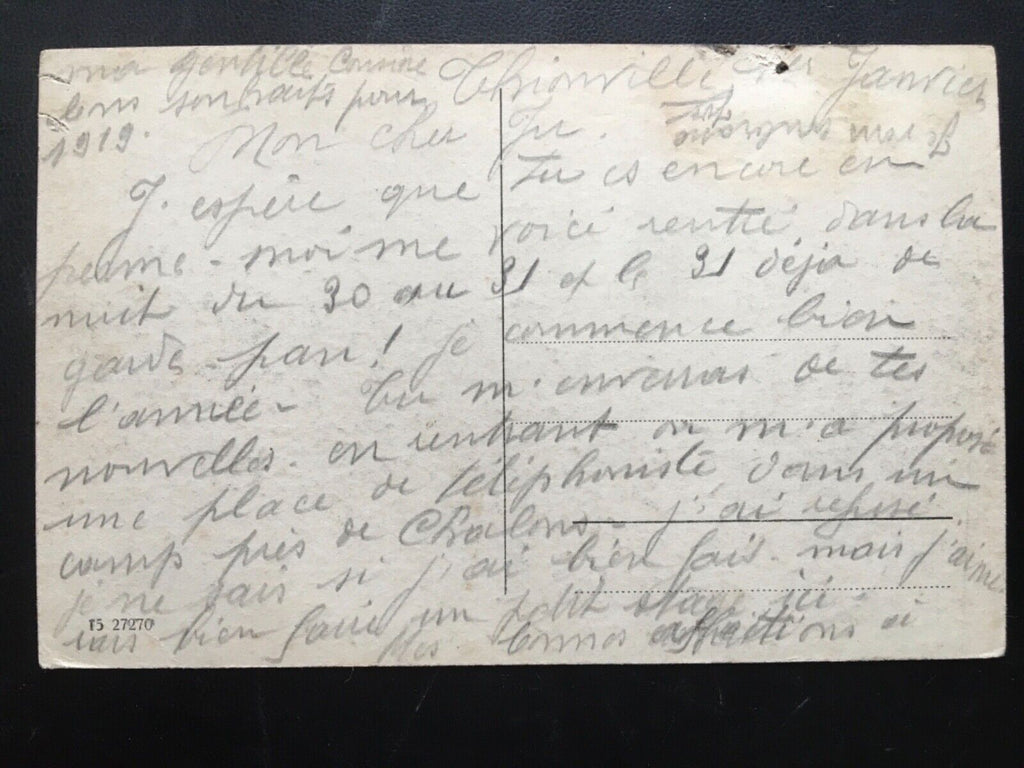 Thionville Janvier
Mon cher
J. espère que tu es encore en
perme - moi me voici rentré dans la
nuit du 30 au 31 et le 31 déjà de
garde - pan! je commence bien
l'année - Tu m'enverras de tes
nouvelles. en rentrant on m'a proposé
une place de téléphoniste dans un
camp près de Chalons - j'ai refusé.
je ne sais si j'ai bien fait. mais j'aime
rais bien faire un petit stage ici -
bonnes affections à
ma gentille
bons souhaits pour
1919.
15 27270